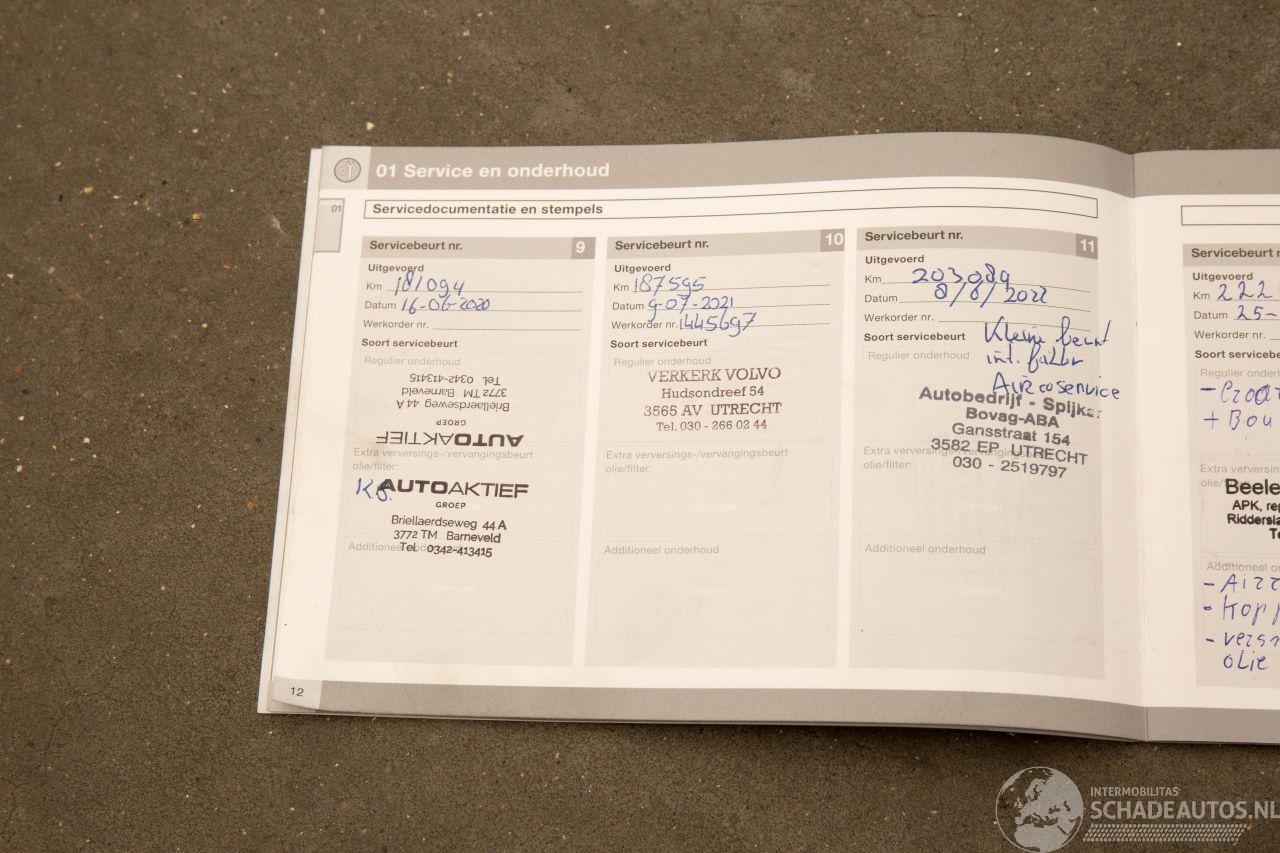 01 Service en onderhoud
01
Servicedocumentatie en stempels
Servicebeurt nr. 9
Uitgevoerd
Km 181094
Datum 16-06-2020
Werkorder nr.
Soort servicebeurt
Regulier onderhoud
AUTOAKTIEF
GROEP
Briellaerdseweg 44 A
3772 TM Barneveld
Tel. 0342-413415
Extra verversings-/vervangingsbeurt
olie/filter:
AUTOAKTIEF
GROEP
Briellaerdseweg 44 A
3772 TM Barneveld
Tel. 0342-413415
Additioneel
Stempel
Servicebeurt nr. 10
Uitgevoerd
Km 187595
Datum 9-07-2021
Werkorder nr. 1445697
Soort servicebeurt
Regulier onderhoud
VERKERK VOLVO
Hudsondreef 54
3565 AV UTRECHT
Tel. 030 - 266 02 44
Extra verversings-/vervangingsbeurt
olie/filter:
Stempel
Additioneel onderhoud
Stempel
Servicebeurt nr. 11
Uitgevoerd
Km 203089
Datum 8/8/2022
Werkorder nr.
Soort servicebeurt
Kleine beurt
Regulier onderhoud
int. filter
Aircoservice
Autobedrijf - Spijker
Bovag-ABA
Gansstraat 154
3582 EP UTRECHT
030 - 2519797
Extra verversings-/vervangingsbeurt
olie/filter:
Stempel
Additioneel onderhoud
Stempel
Servicebeurt
Uitgevoerd
Km 222
Datum 25-
Werkorder nr.
Soort servicebe
Regulier onderh
+ Bou
Extra verversin
Beele
APK, re
Riddersla
Additioneel on
olie
12
INTERMOBILITAS
SCHADEAUTOS.NL